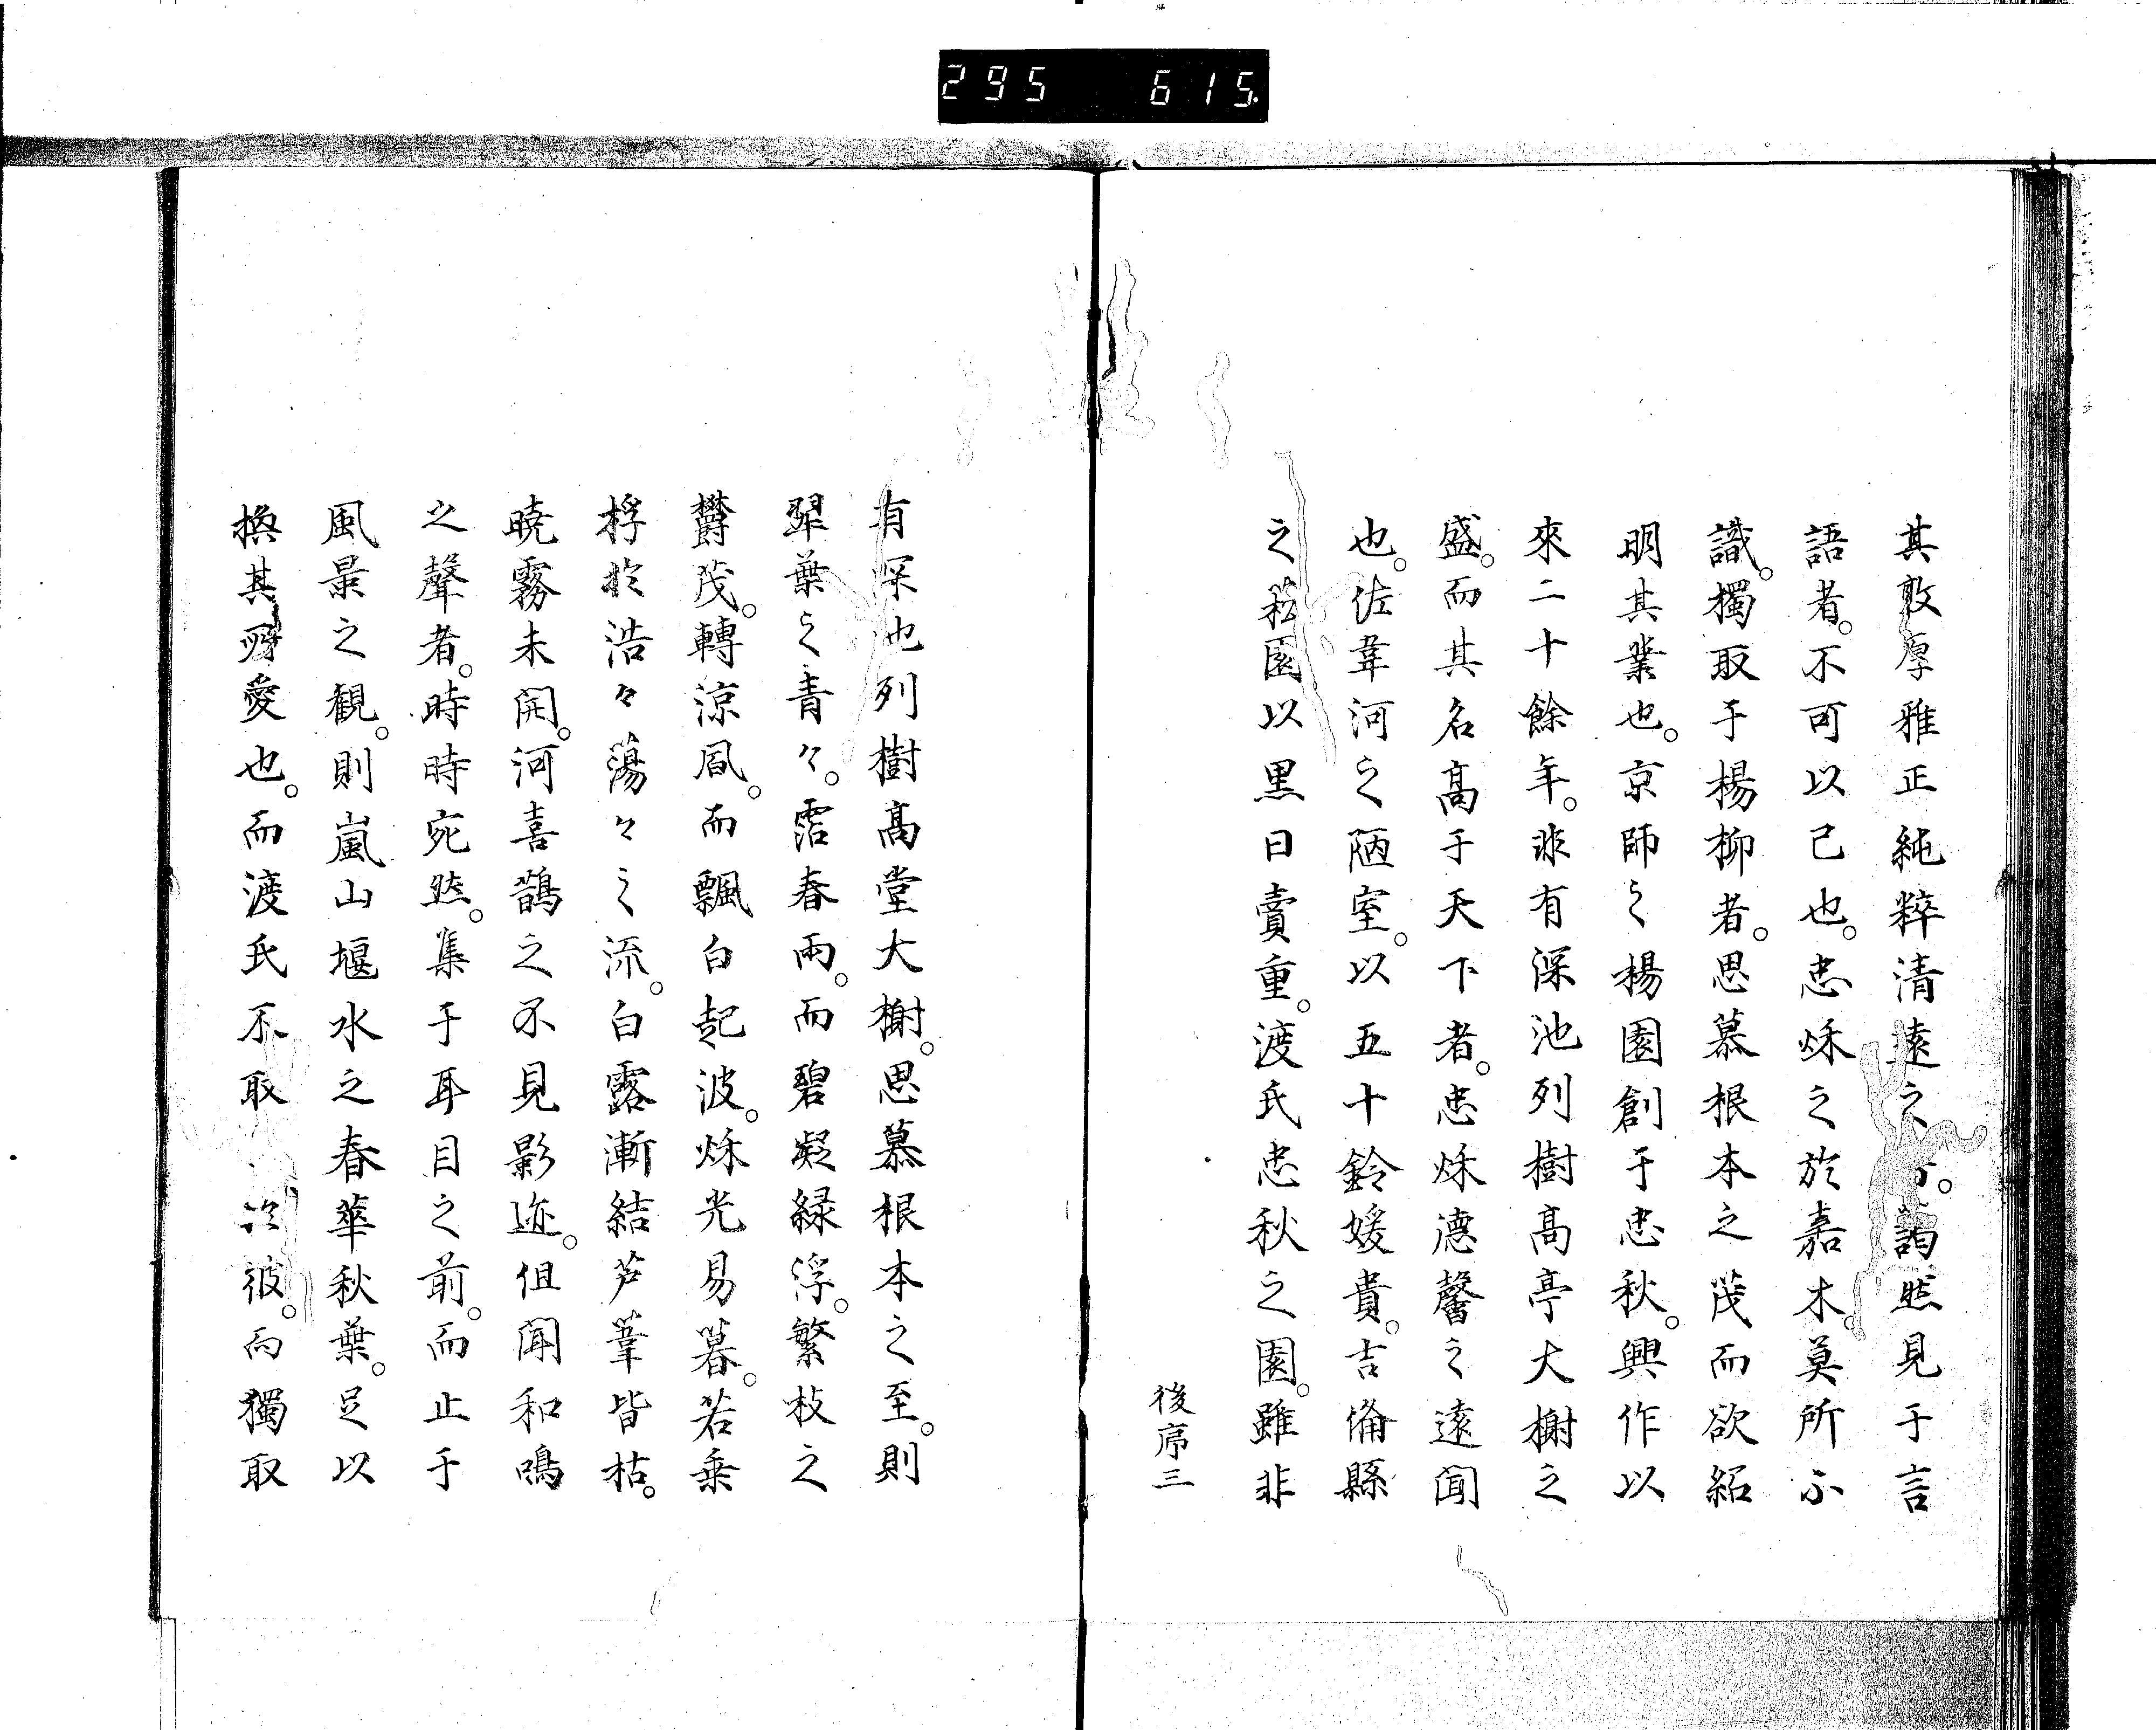 295 615
其敦厚雅正純粹清遠之 。藹然見于言
語者。不可以已也。忠秌之於嘉木。莫所不
識。獨取于楊柳者。思慕根本之茂而欲紹
明其業也。京師之楊園創于忠秋。興作以
來二十餘年。非有深池列樹高亭大榭之
盛。而其名高于天下者。忠秌德馨之遠聞
也。佐韋河之陋室。以五十鈴媛貴。吉備縣
之菘園以黒日賣重。渡氏忠秋之園。雖非
後序三
有深也列樹高堂大榭。思慕根本之至。則
翠葉之青々。霑春雨。而碧凝緑浮。繁枝之
欝茂。轉涼風。而飄白起波。秌光易暮。若乗
桴於浩々蕩々之流。白露漸結芦葦皆枯。
曉霧未開。河喜鵲之不見影迹。但聞和鳴
之聲者。時時宛然。集于耳目之前。而止于
風景之観。則嵐山堰水之春華秋葉。足以
換其所愛也。而渡氏不取 於彼。而獨取